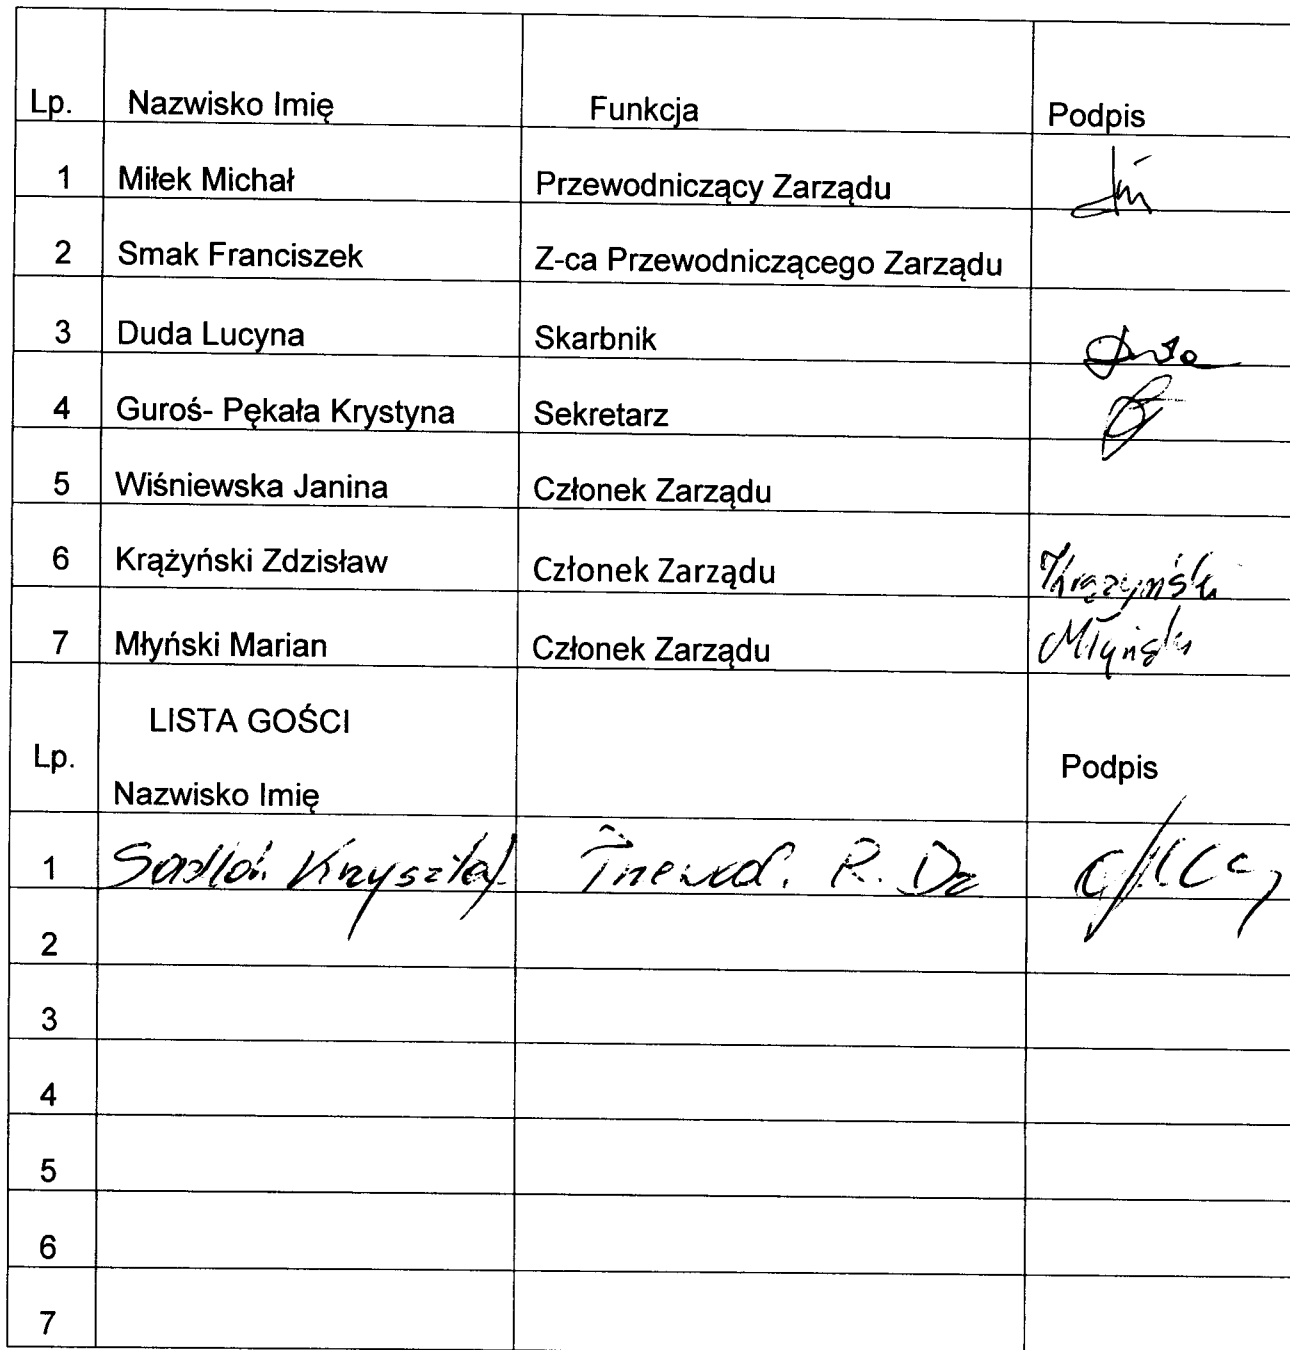 Lp. Nazwisko Imię Funkcja Podpis
1 Miłek Michał Przewodniczący Zarządu
2 Smak Franciszek Z-ca Przewodniczącego Zarządu
3 Duda Lucyna Skarbnik Duda
4 Guroś- Pękała Krystyna Sekretarz
5 Wiśniewska Janina Członek Zarządu
6 Krążyński Zdzisław Członek Zarządu Krążyński
7 Młyński Marian Członek Zarządu Młyński
LISTA GOŚCI
Lp. Podpis
Nazwisko Imię
1 Sadłoń Krzysztof Przewod. R. Dz
2
3
4
5
6
7